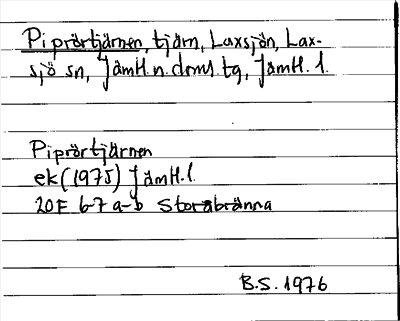 Piprörtjärnen, tjärn, Laxsjön, Lax-
sjö sn, Jämtl.n.doms.tg, Jämtl.l.
Piprörtjärnen
ek(1975) Jämtl.l.
20F 6-7 a-b Storabränna
B.S. 1976